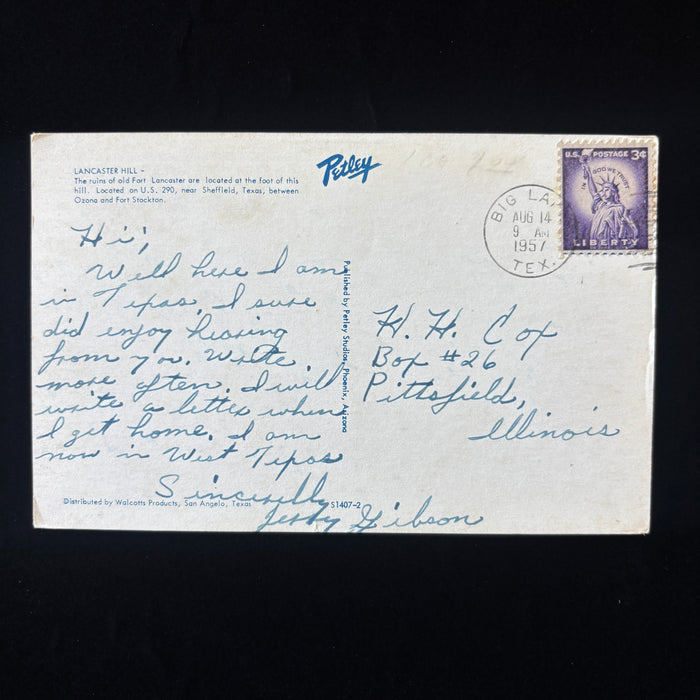 LANCASTER HILL –
The ruins of old Fort Lancaster are located at the foot of this
hill. Located on U.S. 290, near Sheffield, Texas, between
Ozona and Fort Stockton.
Petley
U.S. POSTAGE 3¢
IN GOD WE TRUST
LIBERTY
BIG LA
AUG 14
9 AM
1957
TEX.
Hi,
Well here I am
in Texas, I sure
did enjoy hearing
from you. Write
more often. I will
write a letter when
I get home. I am
now in West Texas
Sincerely
Jerry Gibson
Published by Petley Studios, Phoenix, Arizona
H. H. Cox
Box #26
Pittsfield,
Illinois
Distributed by Walcotts Products, San Angelo, Texas
S1407-2